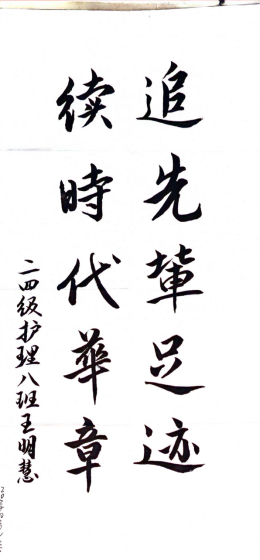 追先辈足迹
续時代華章
二四级护理八班王明慧